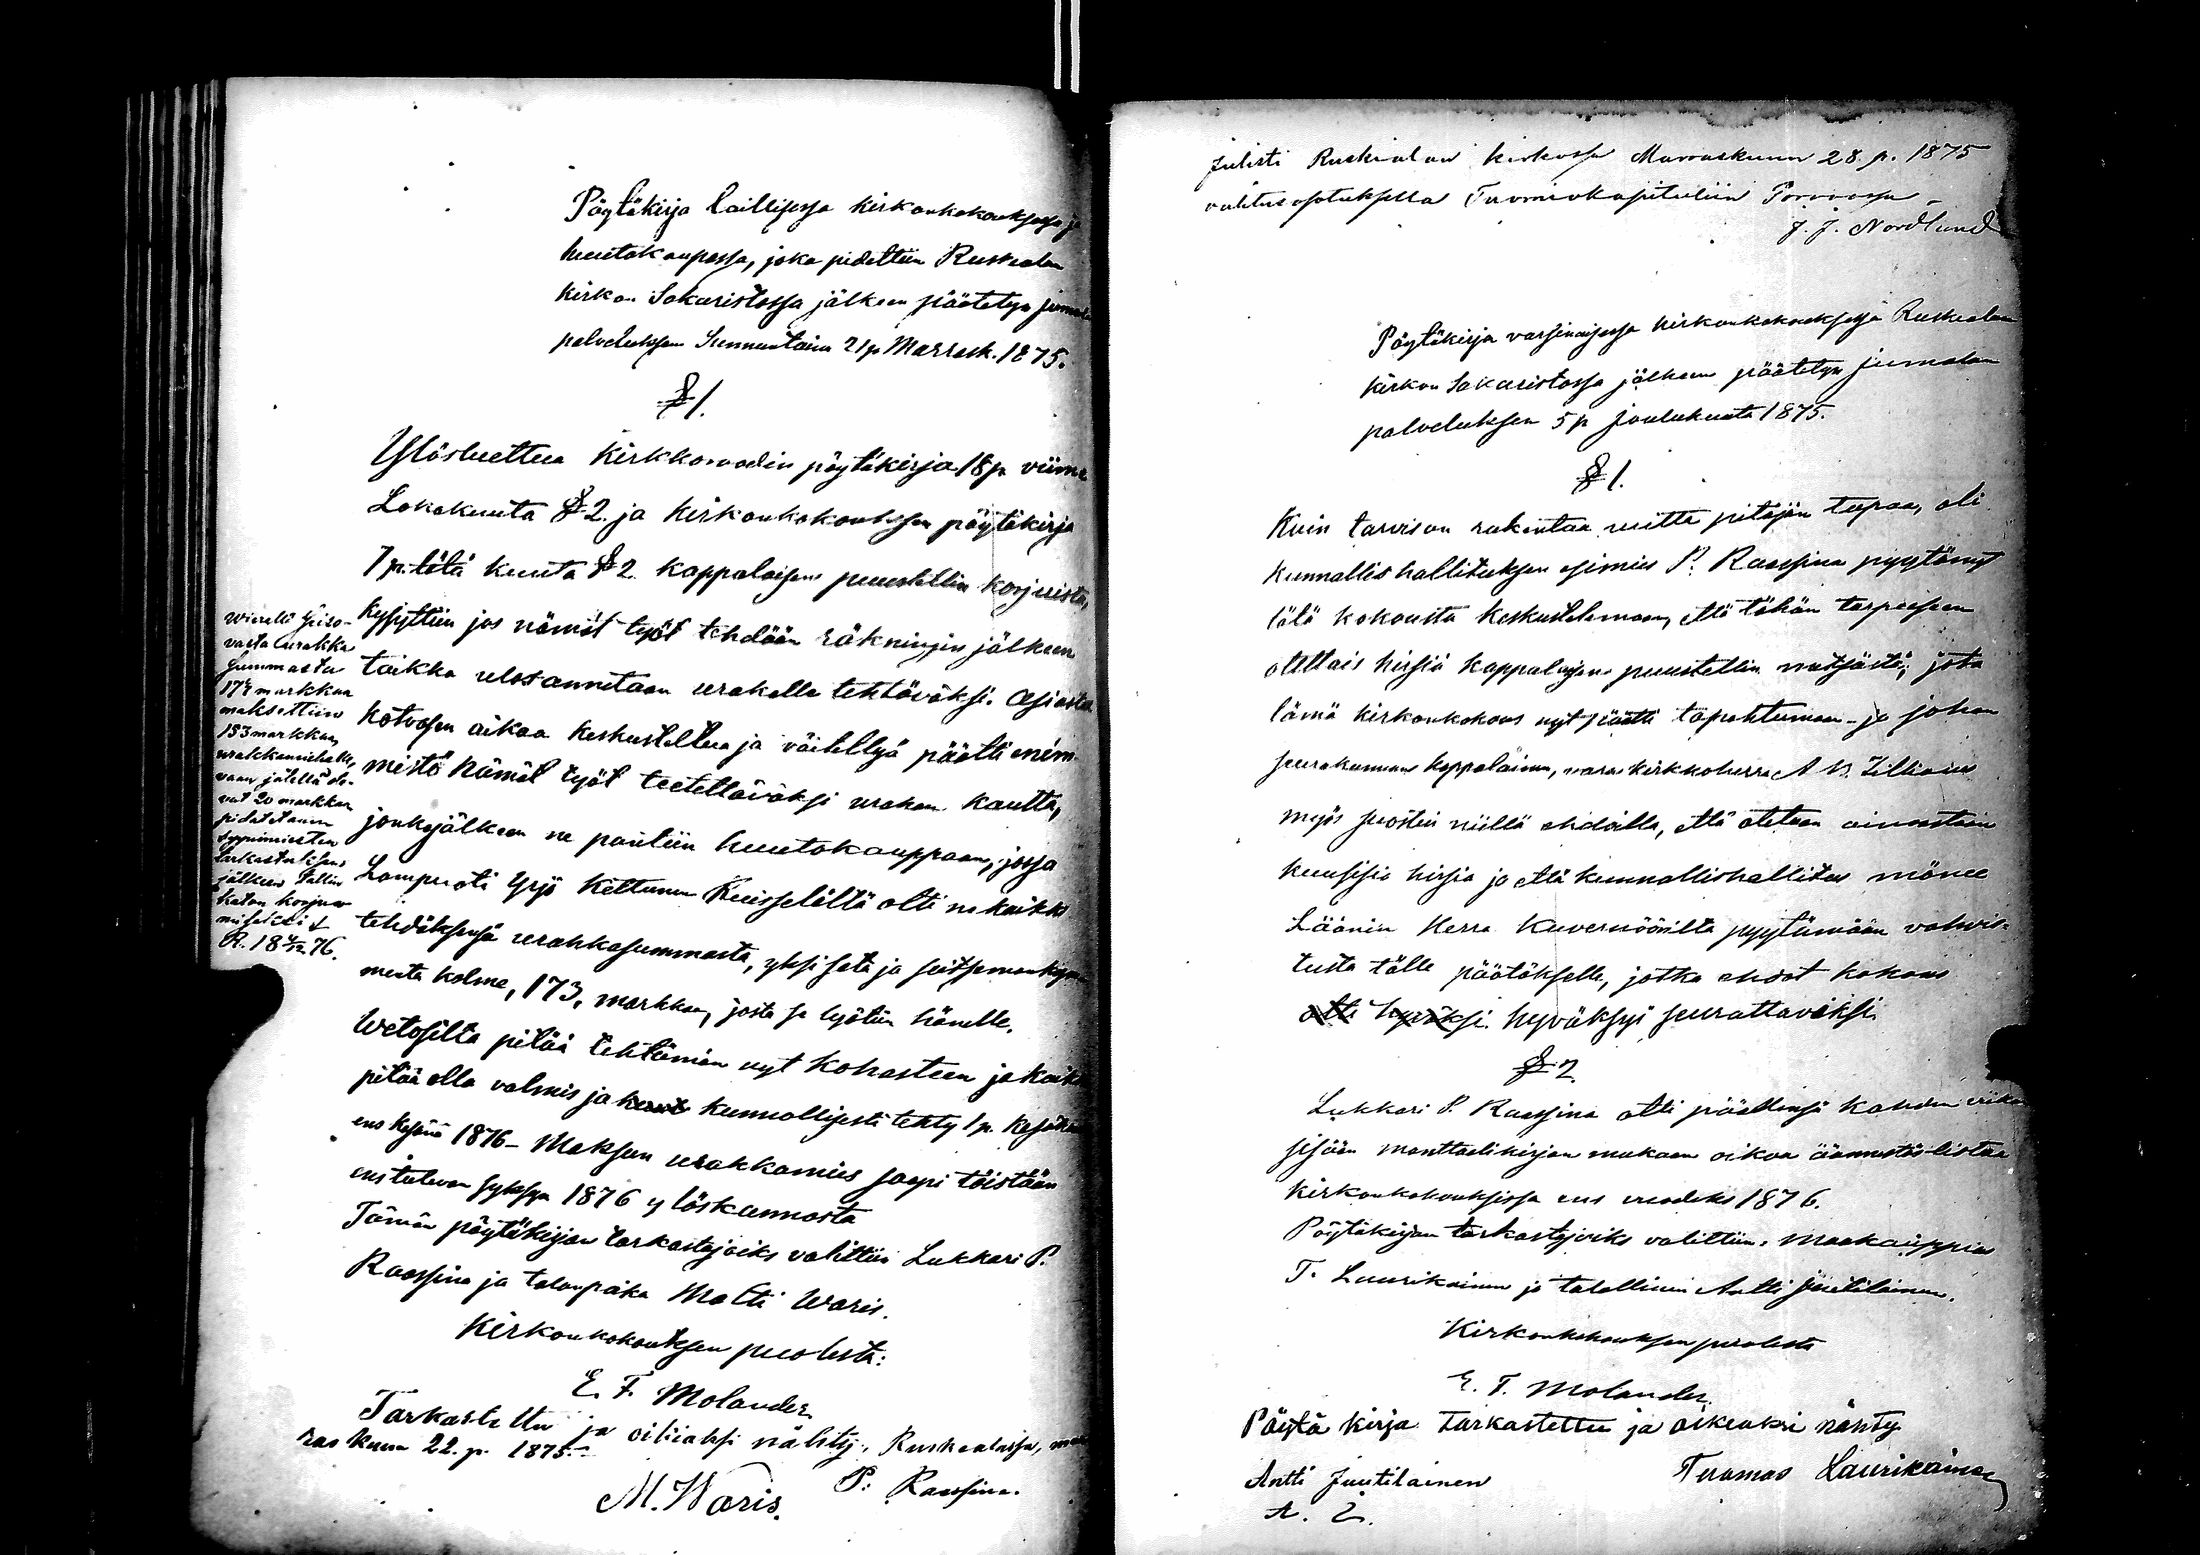 Pöytäkirja laillisessa kirkonkokouksessa ja
huutokaupassa, joka pidettiin Ruskealan
kirkon Sakaristossa jälkeen päätetyn jumalan
palveluksen Sunnuntaina 21 p Marrask. 1875.
§ 1.
Ylösluettua Kirkkoraadin pöytäkirja 18 p. viime
Lokakuuta § 2. ja Kirkonkokouksen pöytäkirja
7 p. tätä kuuta § 2. kappalaisen puustellin korjuista,
kysyttiin jos nämät työt tehdään räkningin jälkeen
taikka ulosannetaan urakalla tehtäväksi. Asiasta
kotvasen aikaa keskusteltua ja väiteltyä päätti enem-
mistö nämät työt teetettäväksi urakan kautta,
jonkajälkeen ne pantiin huutokauppaan, jossa
Lampuoti Yrjö Kettunen Kuisselältä otti ne kaikki
tehdäksensä urakkasummasta, yksi sata ja seitsemänkym-
mentä kolme, 173, markkaa, josta se lyötiin hänelle.
Wetosilta pitää tehtämän nyt kohasteen ja kaikki
pitää olla valmis ja kunnollisesti tehty 1 p. kesäkuuta
ens kesänä 1876 – Maksun urakkamies saapi töistään
ens tulevan syksyn 1876 ylöskannosta
Tämän pöytäkirjan tarkastajoiks valittiin Lukkari P.
Raassina ja talonpoika Matti Waris.
Kirkonkokouksen puolesta:
E. F. Molander.
Tarkastettu ja oikiaksi nähty, Ruskealassa, mar
ras kuun 22. p. 1875.
P. Raassina.
M. Waris.
vasta urakka
summasta
173 markkaa
maksettiin
153 markkaa
urakkamiehelle,
vaan jälellä ole-
vat 20 markkaa
pidätetään
syynimiesten
tarkastuksen
jälkeen tallin
katon korjuu
R. 18 4/12 76.
julisti Ruskealan kirkossa Marraskuun 28. p. 1875
valitusosotuksella Tuomiokapituliin Porvoossa
J. J. Nordlund
Pöytäkirja varsinaisessa kirkonkokouksessa Ruskealan
kirkon Sakaristossa jälkeen päätetyn jumalan
palveluksen 5 p joulukuuta 1875.
§ 1.
Kuin tarvis on rakentaa uutta pitäjän tupaa, oli
kunnallishallituksen esimies P. Raassina pyytänyt
tätä kokousta keskustelemaan, että tähän tarpeeseen
otettais hirsiä kappalaisen puustellin metsästä, jota
tämä kirkonkokous nyt päätti tapahtumaan – ja johon
seurakunnan kappalainen, varas kirkkoherra A W. Zilliacus
myös suostui niillä ehdoilla, että otetaan ainoastaan
kuusisia hirsiä ja että kunnallishallitus mänee
Läänin Herra Kuvernööriltä pyytämään vahvis-
tusta tälle päätökselle, jotka ehdot kokous
otti hyväksi. hyväksyi seurattaviksi.
§ 2.
Lukkari P. Raassina otti päällensä kahden viikon
sisään manttaalikirjan mukaan oikoa äännestös-listaa
kirkonkokouksissa ens vuodeks 1876.
Pöytäkirjan tarkastajoiks valittiin, Maakauppias
T. Laurikainen ja talollinen Antti Juutilainen.
Kirkonkokouksen puolesta
E. F. Molander.
Pöytä kirja tarkastettu ja oikeaksi nähty
Antti Juutilainen Tuomas Laurikainen